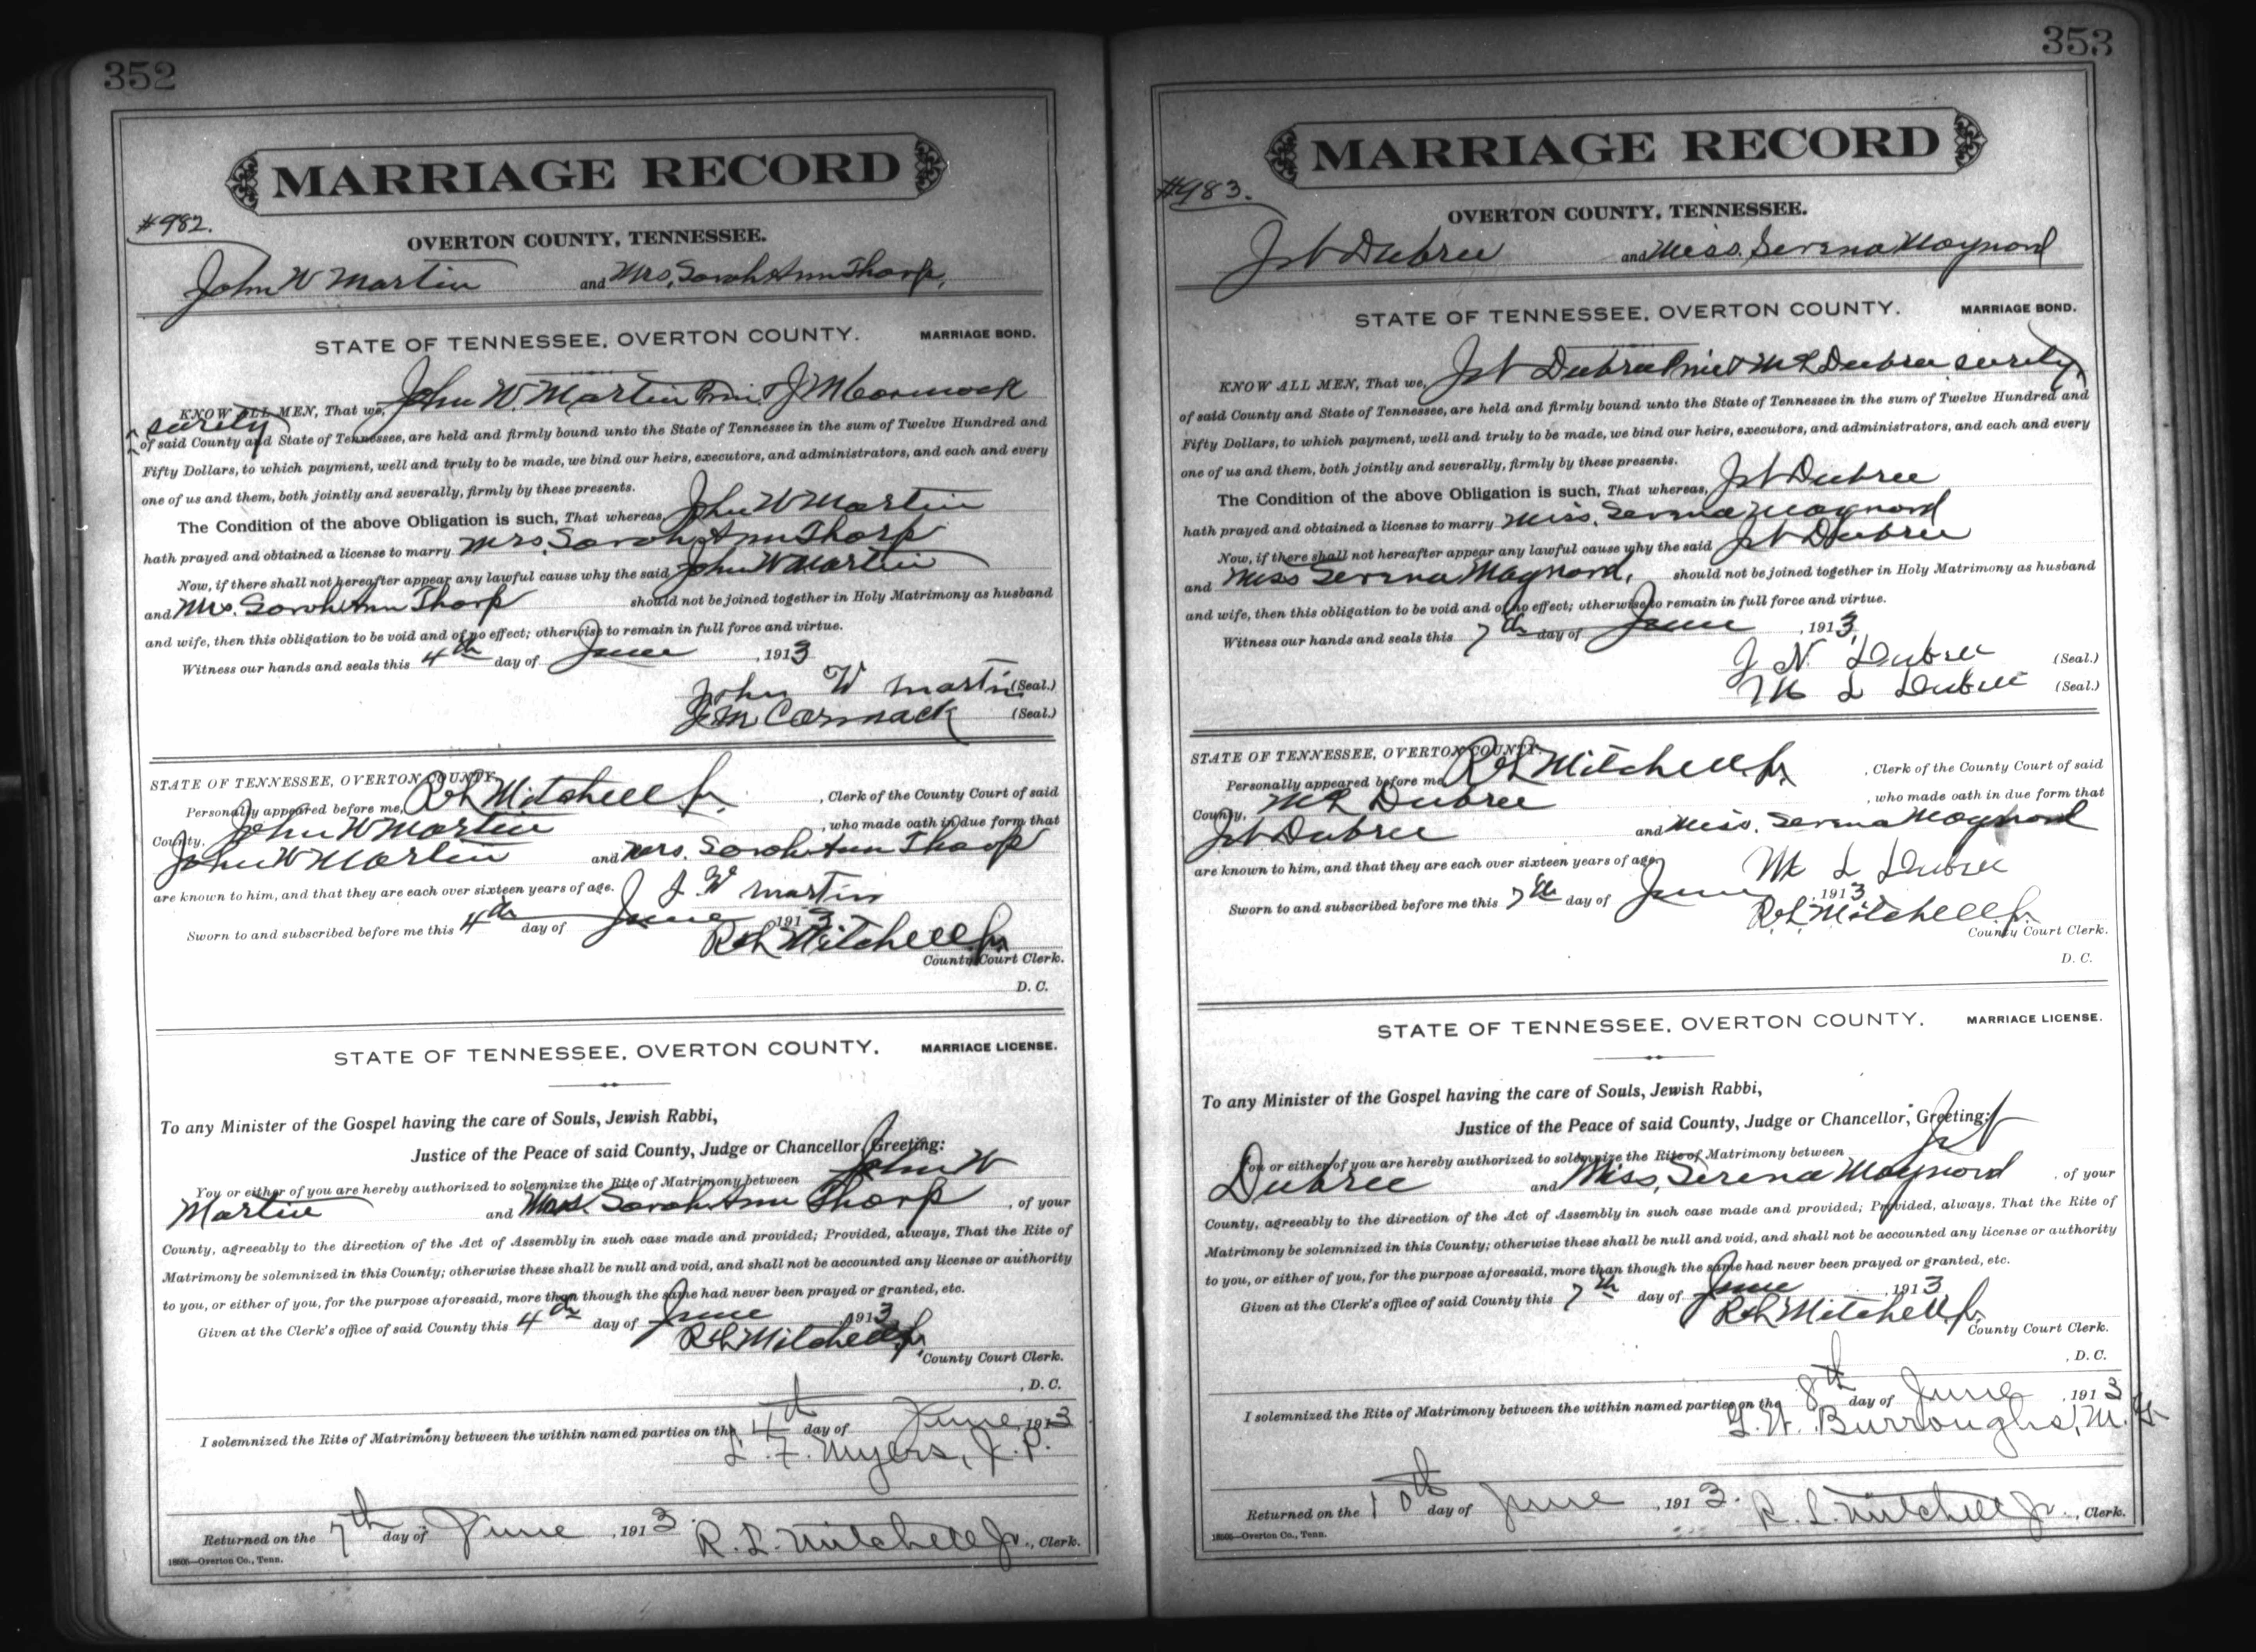 352
MARRIAGE RECORD
#982.
OVERTON COUNTY, TENNESSEE.
John W Martin and Mrs, Sarah Ann Tharp,
STATE OF TENNESSEE, OVERTON COUNTY. MARRIAGE BOND.
KNOW ALL MEN, That we, John W. Martin Prin & J M Cormack
surety
of said County and State of Tennessee, are held and firmly bound unto the State of Tennessee in the sum of Twelve Hundred and
Fifty Dollars, to which payment, well and truly to be made, we bind our heirs, executors, and administrators, and each and every
one of us and them, both jointly and severally, firmly by these presents.
The Condition of the above Obligation is such, That whereas, John W Martin
hath prayed and obtained a license to marry Mrs, Sarah Ann Tharp
Now, if there shall not hereafter appear any lawful cause why the said John W Martin
and Mrs. Sarah Ann Tharp should not be joined together in Holy Matrimony as husband
and wife, then this obligation to be void and of no effect; otherwise to remain in full force and virtue.
Witness our hands and seals this 4th day of June, 1913
John W Martin (Seal.)
J M Cormack (Seal.)
STATE OF TENNESSEE, OVERTON COUNTY.
Personally appeared before me, R L Mitchell Jr., Clerk of the County Court of said
County, John W Martin, who made oath in due form that
John W Martin and Mrs. Sarah Ann Tharp
are known to him, and that they are each over sixteen years of age.
J W Martin
Sworn to and subscribed before me this 4th day of June 1913
R L Mitchell Jr
County Court Clerk.
D. C.
STATE OF TENNESSEE, OVERTON COUNTY. MARRIAGE LICENSE.
To any Minister of the Gospel having the care of Souls, Jewish Rabbi,
Justice of the Peace of said County, Judge or Chancellor, Greeting:
You or either of you are hereby authorized to solemnize the Rite of Matrimony between John W
Martin and Mrs. Sarah Ann Tharp, of your
County, agreeably to the direction of the Act of Assembly in such case made and provided; Provided, always, That the Rite of
Matrimony be solemnized in this County; otherwise these shall be null and void, and shall not be accounted any license or authority
to you, or either of you, for the purpose aforesaid, more than though the same had never been prayed or granted, etc.
Given at the Clerk's office of said County this 4th day of June, 1913
R L Mitchell Jr,
County Court Clerk.
, D. C.
I solemnized the Rite of Matrimony between the within named parties on the 4th day of June, 1913
L. F. Myers, J. P.
Returned on the 7th day of June, 1913. R. L. Mitchell Jr., Clerk.
Overton Co., Tenn.
353
MARRIAGE RECORD
#983.
OVERTON COUNTY, TENNESSEE.
J N Dubree and Miss. Serena Maynord
STATE OF TENNESSEE, OVERTON COUNTY. MARRIAGE BOND.
KNOW ALL MEN, That we, J N Dubree Prin & M L Dubree surety
of said County and State of Tennessee, are held and firmly bound unto the State of Tennessee in the sum of Twelve Hundred and
Fifty Dollars, to which payment, well and truly to be made, we bind our heirs, executors, and administrators, and each and every
one of us and them, both jointly and severally, firmly by these presents.
The Condition of the above Obligation is such, That whereas, J N Dubree
hath prayed and obtained a license to marry Miss. Serena Maynord
Now, if there shall not hereafter appear any lawful cause why the said J N Dubree
and Miss Serena Maynord, should not be joined together in Holy Matrimony as husband
and wife, then this obligation to be void and of no effect; otherwise to remain in full force and virtue.
Witness our hands and seals this 7th day of June, 1913
J N. Dubree (Seal.)
M L Dubree (Seal.)
STATE OF TENNESSEE, OVERTON COUNTY.
Personally appeared before me R L Mitchell Jr, Clerk of the County Court of said
County, M L Dubree, who made oath in due form that
J N Dubree and Miss. Serena Maynord
are known to him, and that they are each over sixteen years of age,
M L Dubree
Sworn to and subscribed before me this 7th day of June, 1913
R. L. Mitchell Jr.
County Court Clerk.
D. C.
STATE OF TENNESSEE, OVERTON COUNTY. MARRIAGE LICENSE.
To any Minister of the Gospel having the care of Souls, Jewish Rabbi,
Justice of the Peace of said County, Judge or Chancellor, Greeting:
You or either of you are hereby authorized to solemnize the Rite of Matrimony between J N
Dubree and Miss, Serena Maynord, of your
County, agreeably to the direction of the Act of Assembly in such case made and provided; Provided, always, That the Rite of
Matrimony be solemnized in this County; otherwise these shall be null and void, and shall not be accounted any license or authority
to you, or either of you, for the purpose aforesaid, more than though the same had never been prayed or granted, etc.
Given at the Clerk's office of said County this 7th day of June, 1913
R L Mitchell Jr.
County Court Clerk.
, D. C.
I solemnized the Rite of Matrimony between the within named parties on the 8th day of June, 1913
Burroughs, M. G.
Returned on the 10th day of June, 1913. R. L. Mitchell Jr., Clerk.
Overton Co., Tenn.